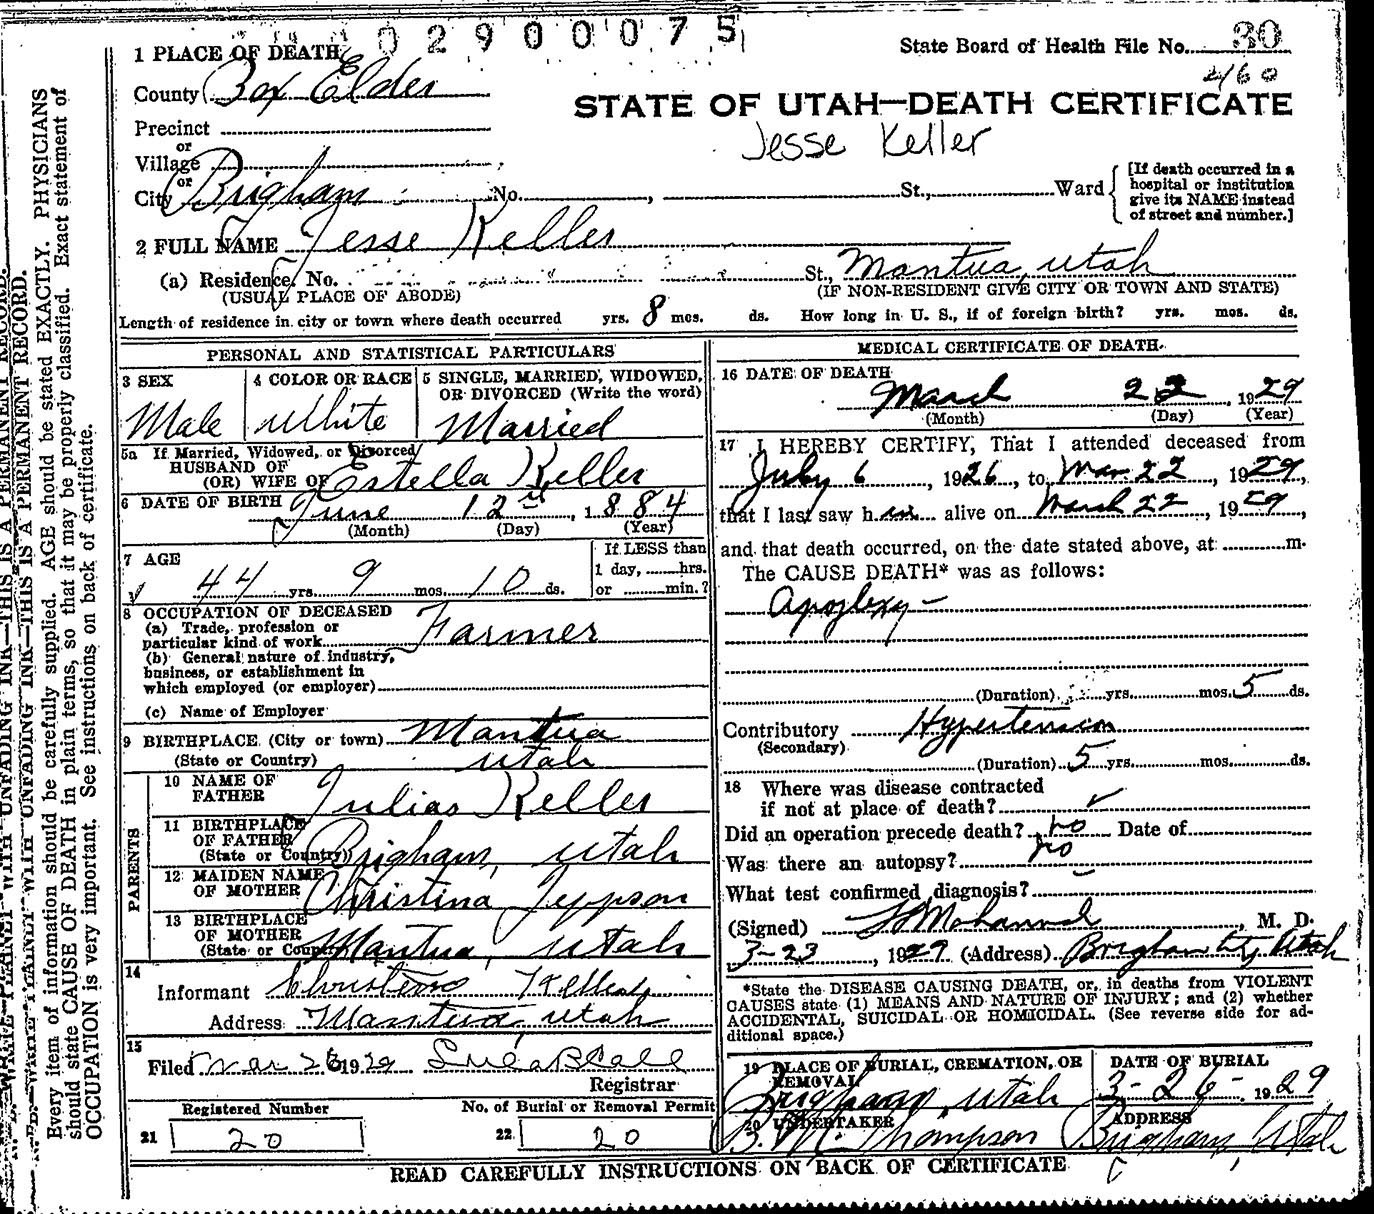 02900075
State Board of Health File No. 30
460
1 PLACE OF DEATH
County Box Elder
STATE OF UTAH—DEATH CERTIFICATE
Precinct
Jesse Keller
or
Village
or
City Brigham No. , St., Ward
[If death occurred in a
hospital or institution
give its NAME instead
of street and number.]
2 FULL NAME Jesse Keller
(a) Residence, No. St., Mantua, Utah
(USUAL PLACE OF ABODE) (IF NON-RESIDENT GIVE CITY OR TOWN AND STATE)
Length of residence in city or town where death occurred yrs. 8 mos. ds. How long in U. S., if of foreign birth? yrs. mos. ds.
PERSONAL AND STATISTICAL PARTICULARS
3 SEX
Male
4 COLOR OR RACE
White
5 SINGLE, MARRIED, WIDOWED,
OR DIVORCED (Write the word)
Married
5a If Married, Widowed, or Divorced
HUSBAND OF
(OR) WIFE OF Estella Keller
6 DATE OF BIRTH June 12 , 1884
(Month) (Day) (Year)
7 AGE
44 yrs. 9 mos. 10 ds.
If LESS than
1 day, hrs.
or min.?
8 OCCUPATION OF DECEASED
(a) Trade, profession or
particular kind of work Farmer
(b) General nature of industry,
business, or establishment in
which employed (or employer)
(c) Name of Employer
9 BIRTHPLACE (City or town) Mantua
(State or Country) Utah
PARENTS
10 NAME OF
FATHER Julias Keller
11 BIRTHPLACE
OF FATHER
(State or Country) Brigham, Utah
12 MAIDEN NAME
OF MOTHER Christina Jeppson
13 BIRTHPLACE
OF MOTHER
(State or Country) Mantua, Utah
14
Informant Keller
Address Mantua, Utah
15
Filed Mar 26 1929
Registrar
Registered Number
21 20
No. of Burial or Removal Permit
22 20
MEDICAL CERTIFICATE OF DEATH
16 DATE OF DEATH
March 22, 1929
(Month) (Day) (Year)
17 I HEREBY CERTIFY, That I attended deceased from
July 6, 1926, to Mar. 22, 1929,
that I last saw h im alive on March 22, 1929,
and that death occurred, on the date stated above, at m.
The CAUSE DEATH* was as follows:
Apoplexy—
(Duration) yrs. mos. 5 ds.
Contributory Hypertension
(Secondary)
(Duration) 5 yrs. mos. ds.
18 Where was disease contracted
if not at place of death? ✓
Did an operation precede death? no Date of
Was there an autopsy? no
What test confirmed diagnosis?
(Signed) , M. D.
3-23, 1929 (Address) Brigham City Utah
*State the DISEASE CAUSING DEATH, or, in deaths from VIOLENT
CAUSES state (1) MEANS AND NATURE OF INJURY; and (2) whether
ACCIDENTAL, SUICIDAL OR HOMICIDAL. (See reverse side for ad-
ditional space.)
19 PLACE OF BURIAL, CREMATION, OR
REMOVAL
Brigham, Utah
DATE OF BURIAL
3-26-1929
20 UNDERTAKER
B. M. Thompson
ADDRESS
Brigham, Utah
READ CAREFULLY INSTRUCTIONS ON BACK OF CERTIFICATE
Every item of information should be carefully supplied. AGE should be stated EXACTLY. PHYSICIANS
should state CAUSE OF DEATH in plain terms, so that it may be properly classified. Exact statement of
OCCUPATION is very important. See instructions on back of certificate.